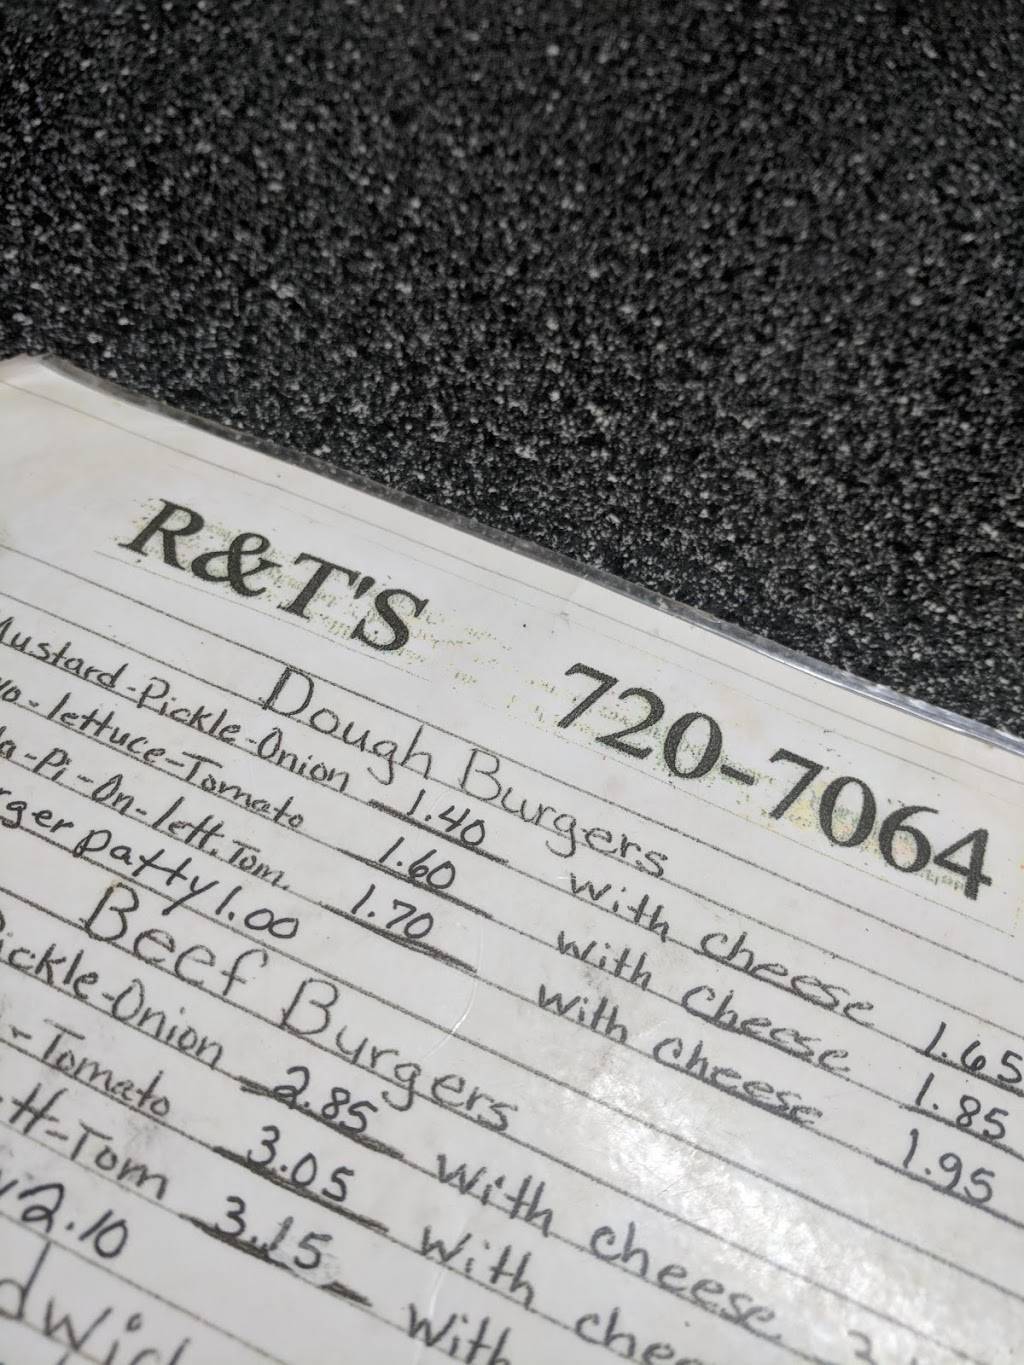 R&T'S 720-7064
Dough Burgers
Mustard-Pickle-Onion 1.40 with cheese 1.65
-lettuce-Tomato 1.60 with cheese 1.85
-Pi-On-lett. Tom. 1.70 with cheese 1.95
patty 1.00
Beef Burgers
-Onion 2.85 with cheese
-Tomato 3.05 with
-Tom 3.15 with
2.10